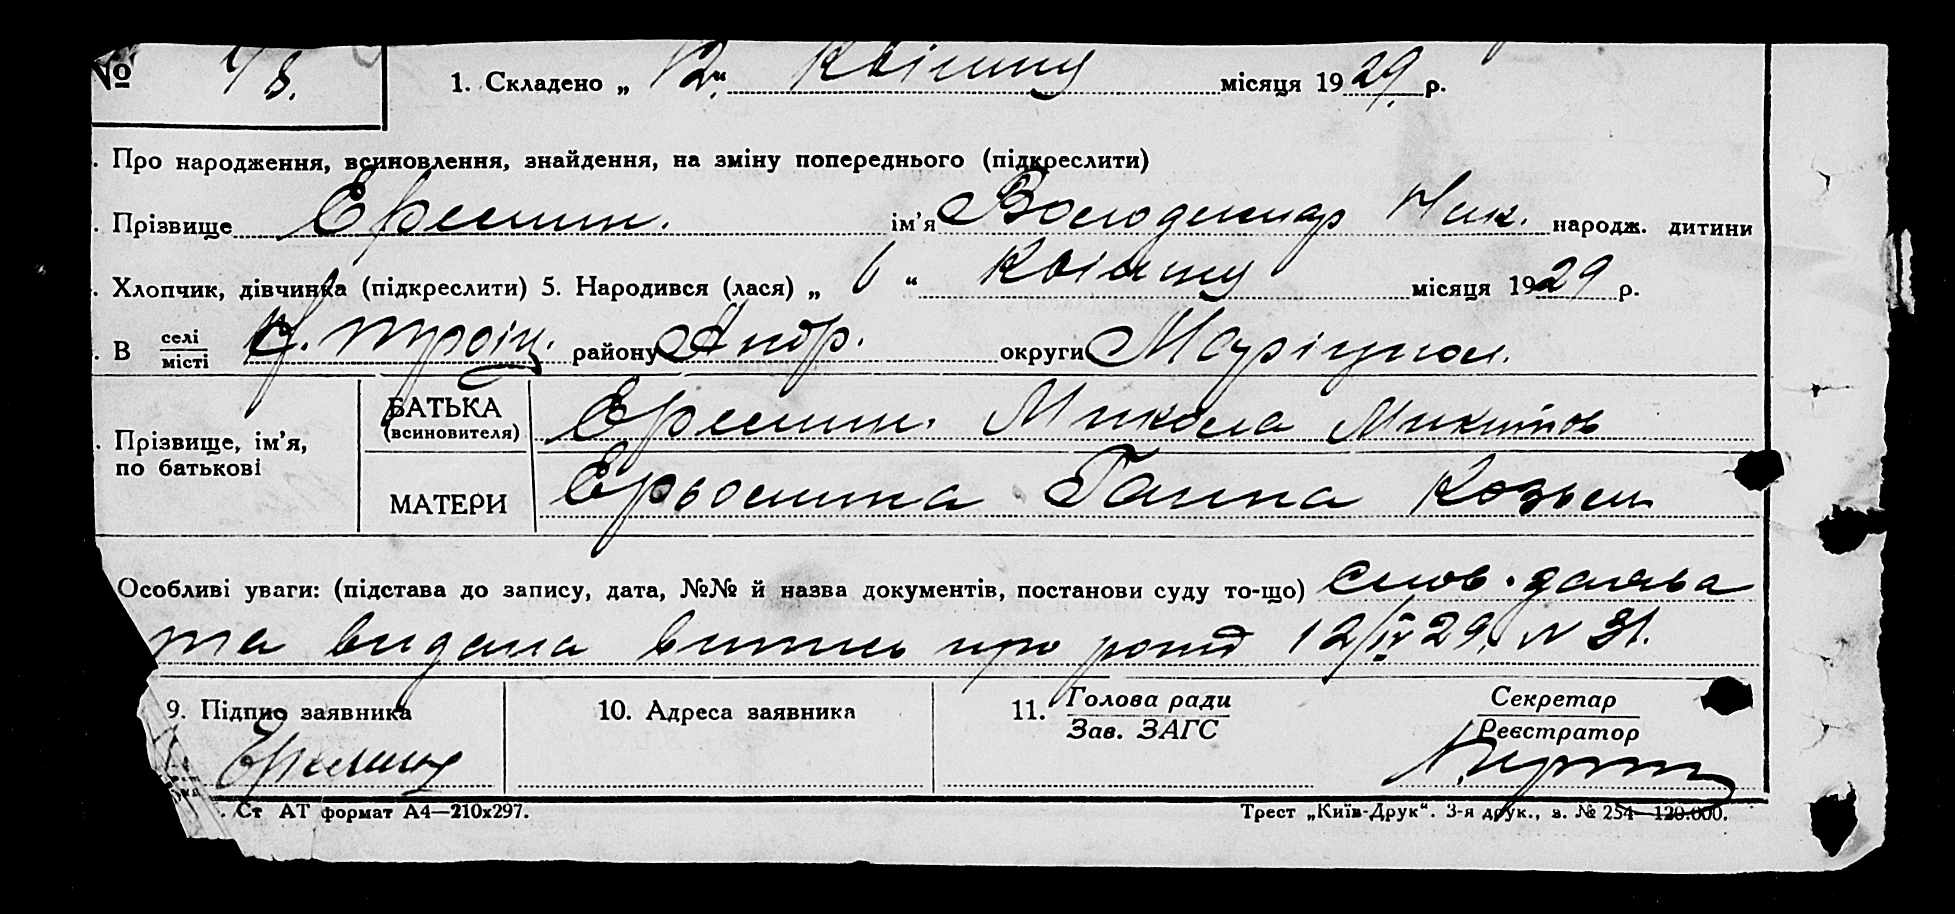 № 48.
1. Складено „12" квітня місяця 1929 р.
. Про народження, всиновлення, знайдення, на зміну попереднього (підкреслити)
. Прізвище Еремин. ім’я Володимир Ник. народж. дитини
. Хлопчик, дівчинка (підкреслити) 5. Народився (лася) „ 6 “ квітня місяця 1929 р.
. В селі/місті троіц. району Андр. округи Маріупол.
БАТЬКА Еремин. Микола Микитов
. Прізвище, ім’я, (всиновителя)
по батькові
МАТЕРИ Ерьомина Ганна Козьм
Особливі уваги: (підстава до запису, дата, №№ й назва документів, постанови суду то-що)
та видана витись про 12/IV 29. N 31.
9. Підпис заявника 10. Адреса заявника 11. Голова ради Секретар
Зав. ЗАГС Реєстратор
Еремин
. Ст АТ формат А4—210х297. Трест „Київ-Друк“. 3-я друк., з. № 254—120.000.